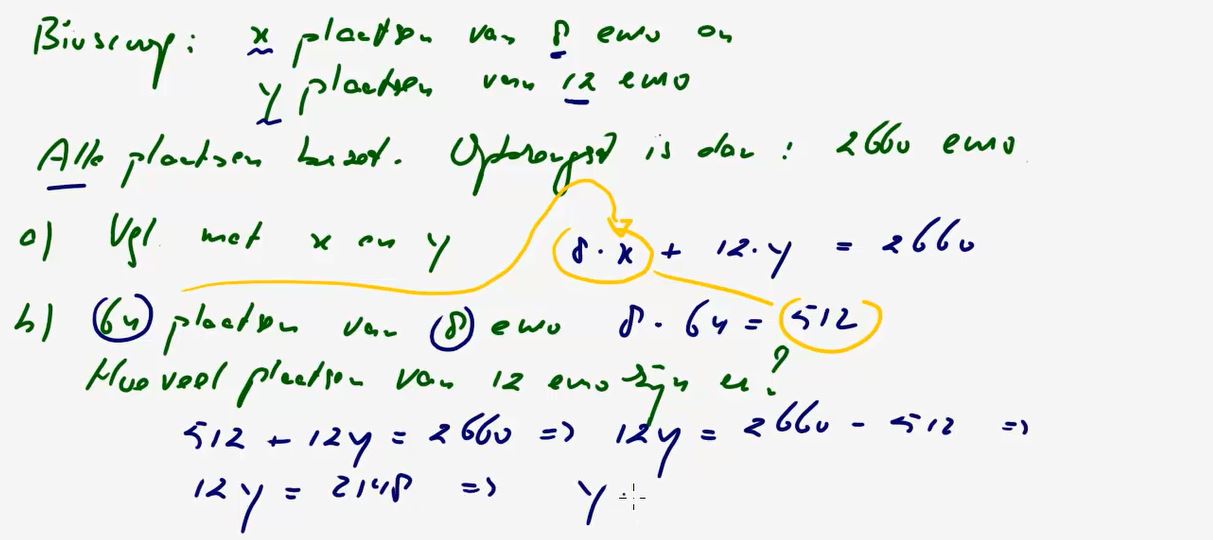 Bioscoop: x plaatsen van 8 euro en
y plaatsen van 12 euro
Alle plaatsen bezet. Opbrengst is dan: 2660 euro
a) Vgl. met x en y 8 · x + 12 · y = 2660
b) 64 plaatsen van 8 euro 8 · 64 = 512
Hoeveel plaatsen van 12 euro zijn er?
512 + 12y = 2660 => 12y = 2660 - 512 =>
12y = 2148 => y